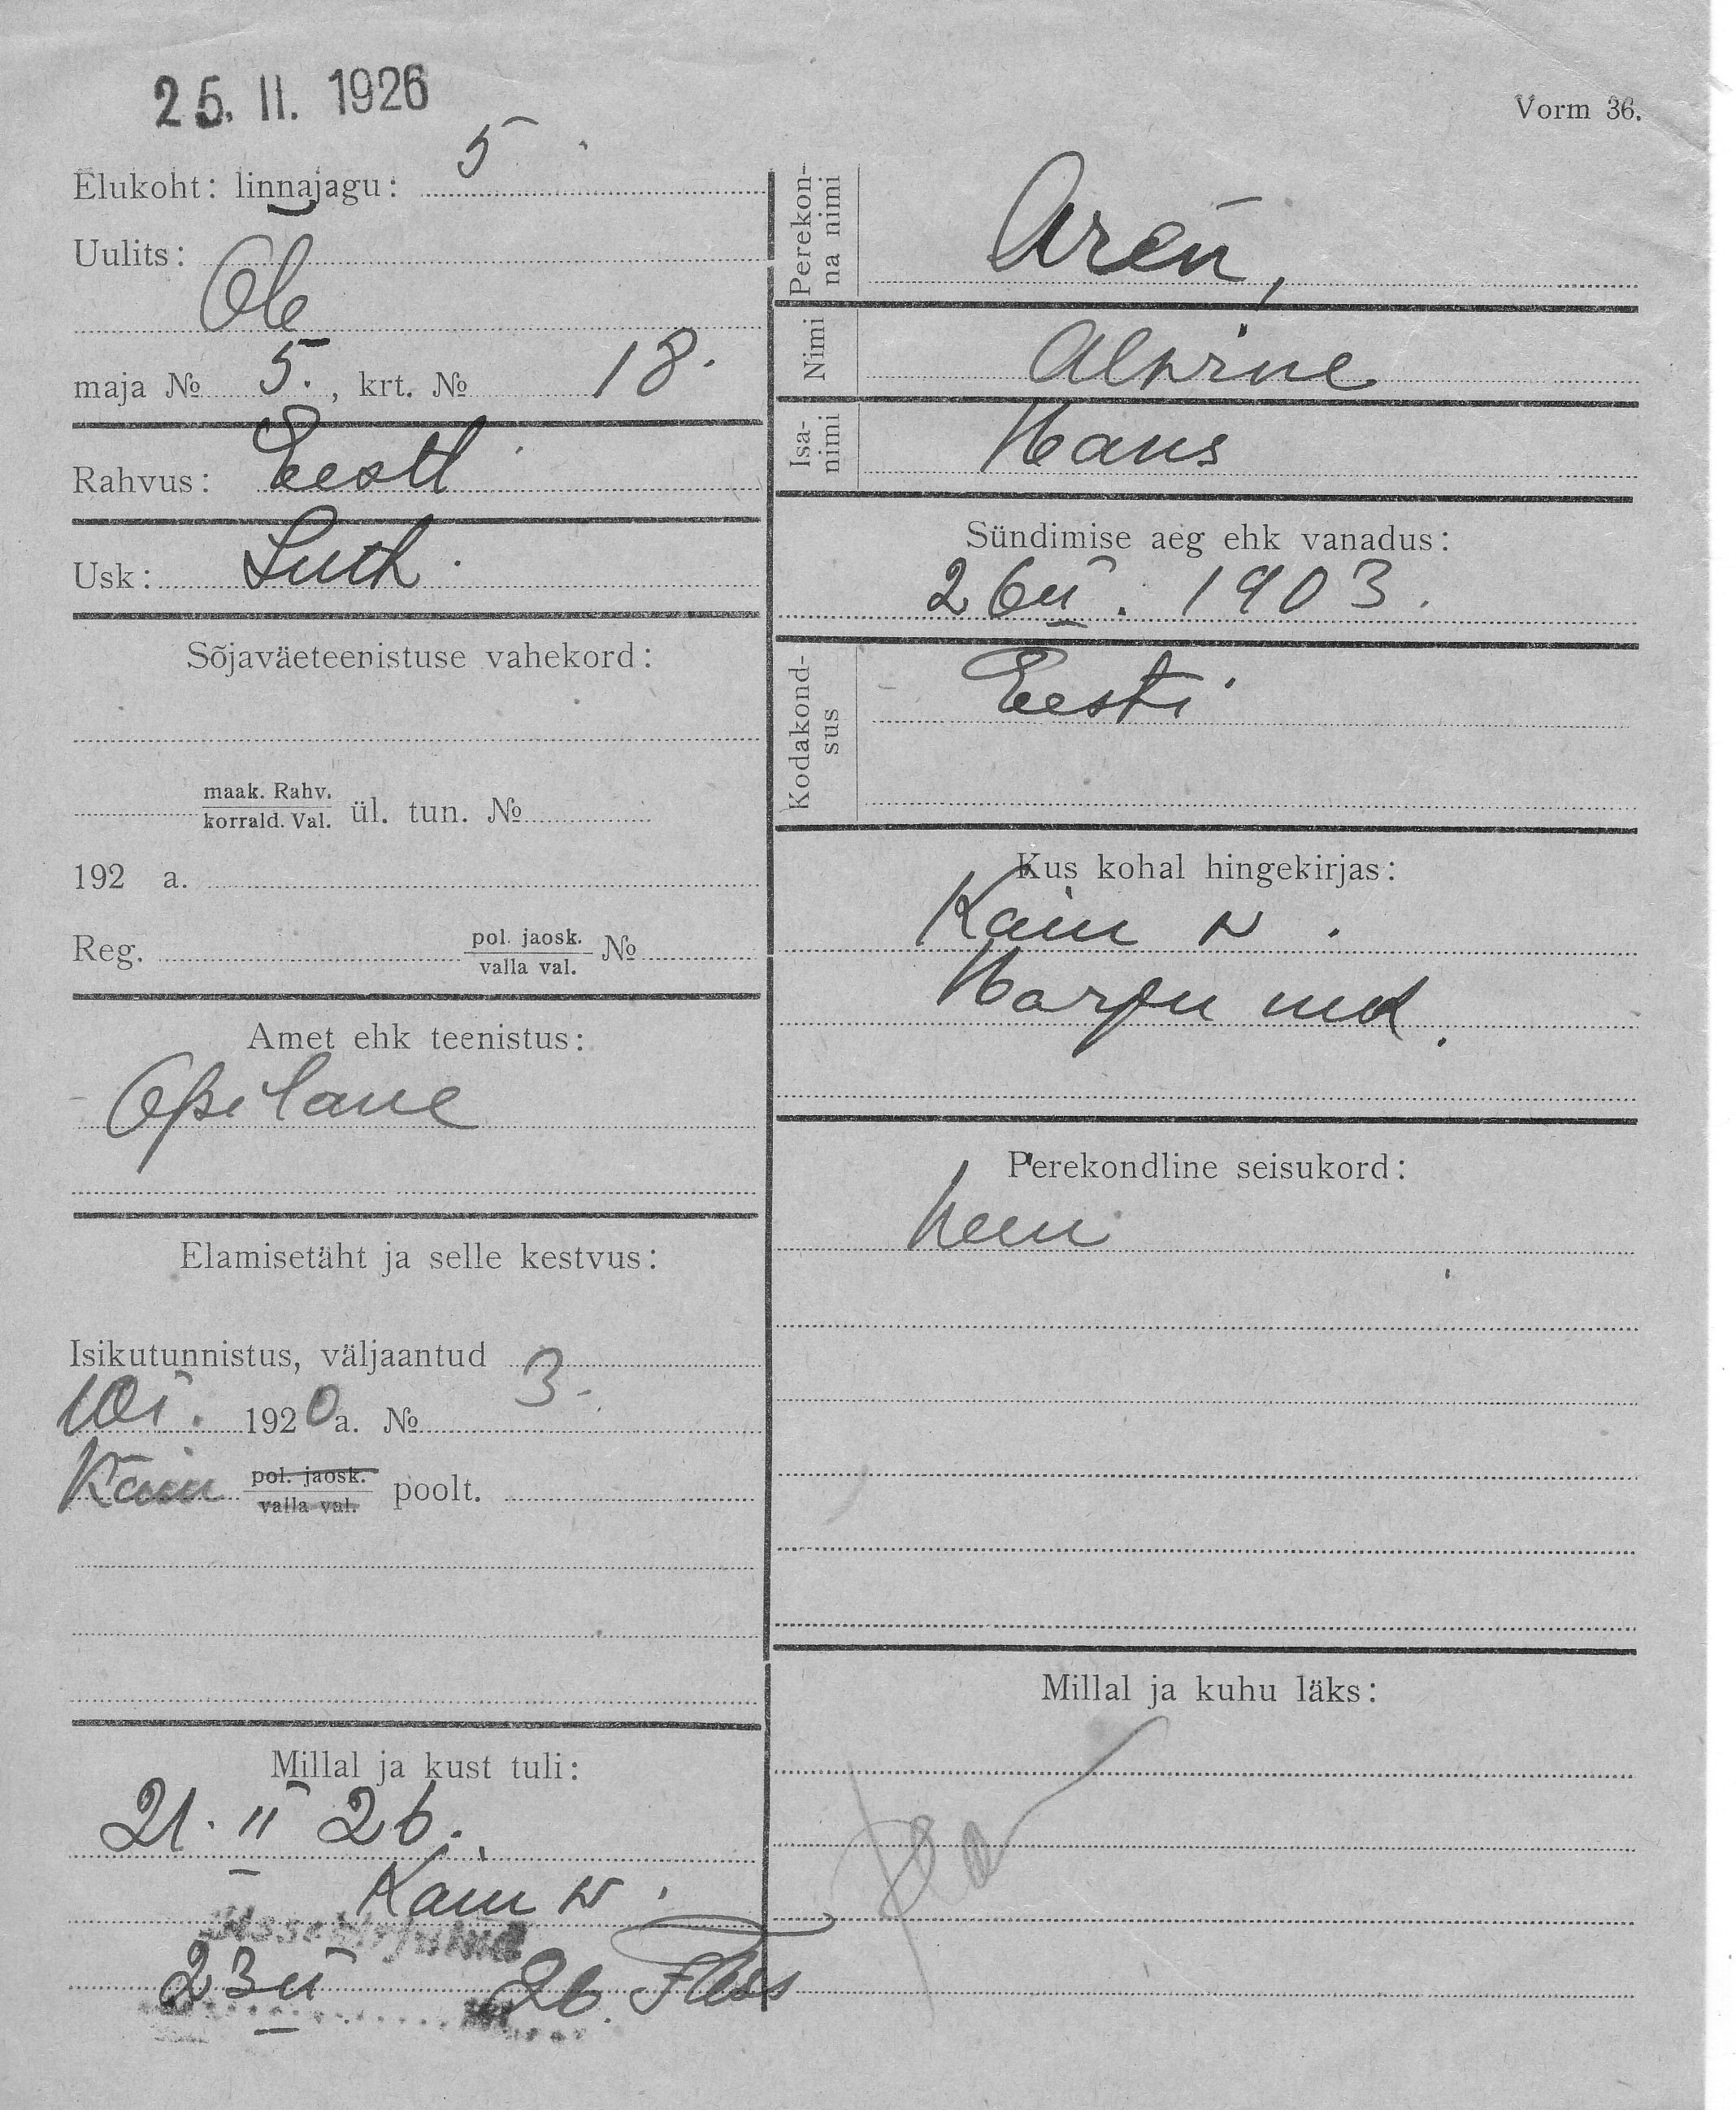 25. II. 1926
Vorm 36.
Elukoht: linnajagu: 5
Uulits:
Ole
maja № 5., krt. № 18.
Rahvus: Eesti
Usk: Luth.
Sõjaväeteenistuse vahekord:
maak. Rahv.
korrald. Val. ül. tun. №
192 a.
Reg. pol. jaosk. №
valla val.
Amet ehk teenistus:
Õpilane
Elamisetäht ja selle kestvus:
Isikutunnistus, väljaantud
3.
1920 a. №
pol. jaosk.
valla val. poolt.
Millal ja kust tuli:
21. II 26.
23 II 26.
Perekon-
na nimi
Aren,
Nimi Alwine
Isa-
nimi Hans
Sündimise aeg ehk vanadus:
26 II. 1903.
Kodakond-
sus Eesti
Kus kohal hingekirjas:
Harju mk.
Perekondline seisukord:
Millal ja kuhu läks: